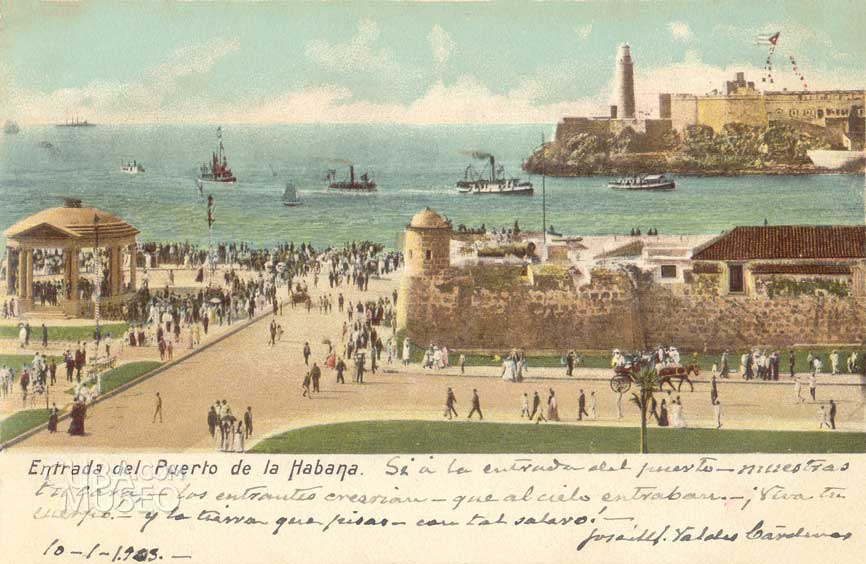 Entrada del Puerto de la Habana. Si á la entrada del puerto - muestras
tu cara - los entrantes creerian - que al cielo entraban. - ¡Viva tu
cuerpo. - y la tierra que pisas - con tal salero!
José M. Valdés Cárdenas
10-1-1903. -
CUBA MUSEO